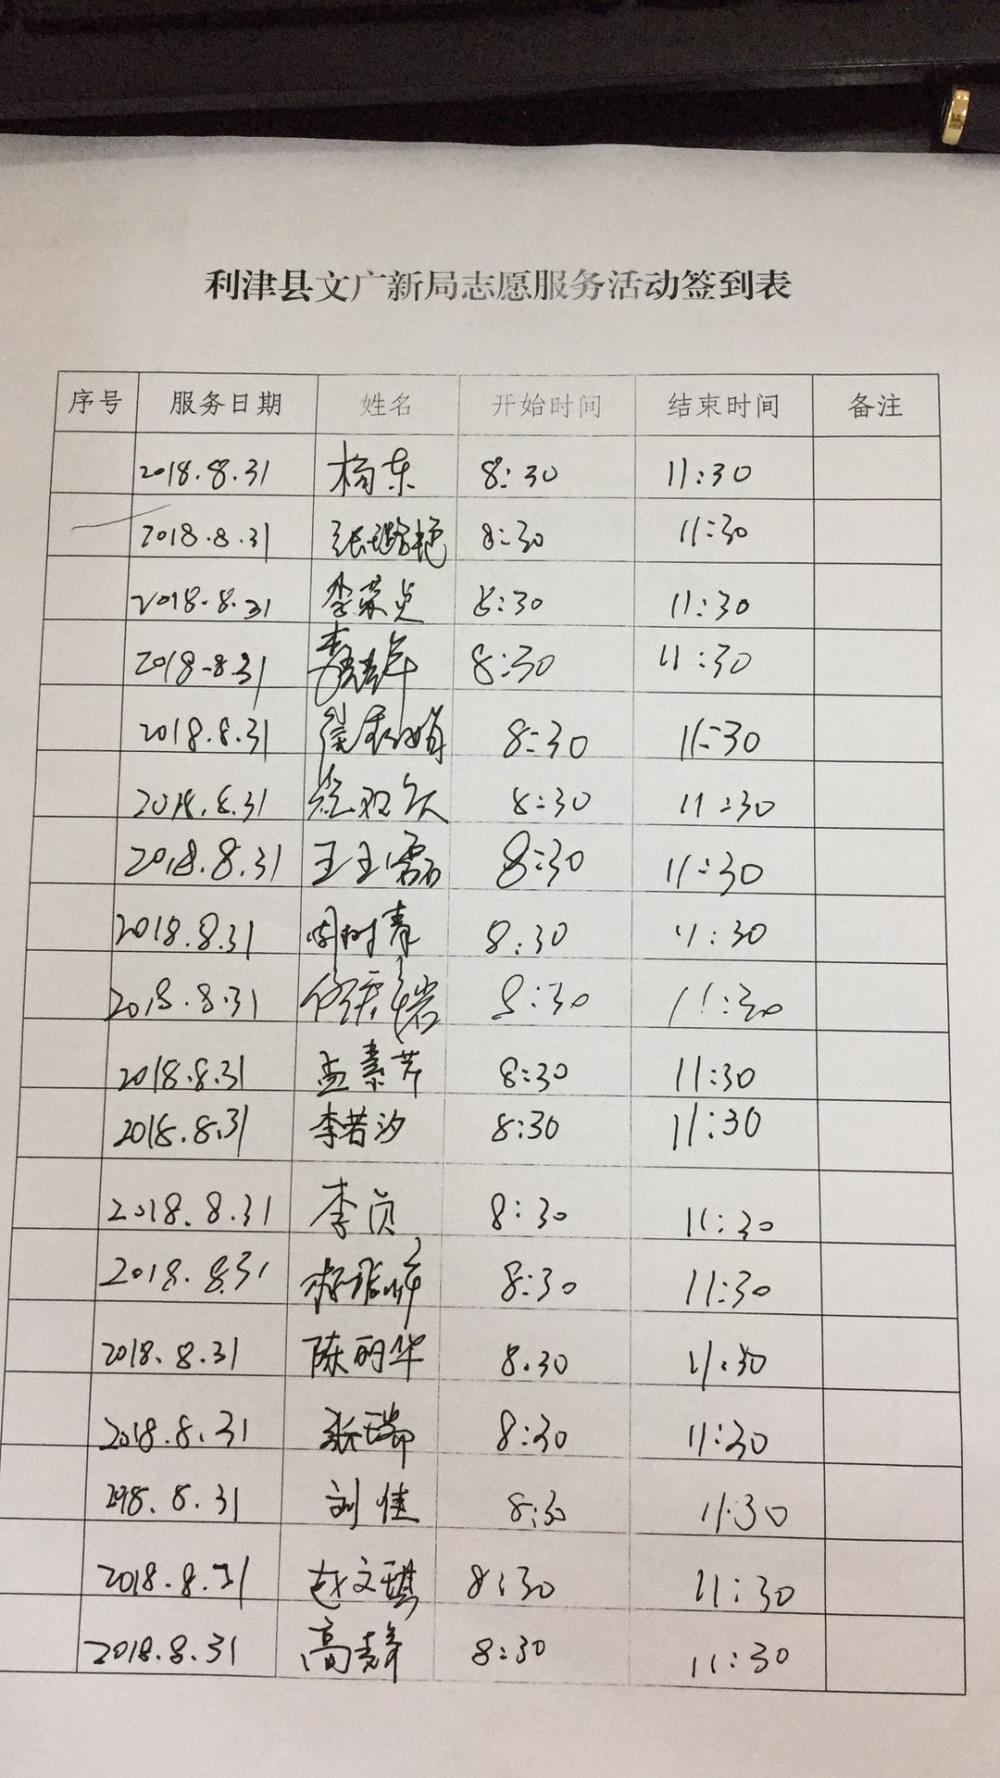 利津县文广新局志愿服务活动签到表
序号 服务日期 姓名 开始时间 结束时间 备注
2018.8.31 杨东 8:30 11:30
2018.8.31 张 8:30 11:30
2018.8.31 李荣贞 8:30 11:30
2018.8.31 8:30 11:30
2018.8.31 8:30 11:30
2018.8.31 8:30 11:30
2018.8.31 王玉磊 8:30 11:30
2018.8.31 周树青 8:30 11:30
2018.8.31 8:30 11:30
2018.8.31 孟素芹 8:30 11:30
2018.8.31 李若汐 8:30 11:30
2018.8.31 李贞 8:30 11:30
2018.8.31 8:30 11:30
2018.8.31 陈明华 8.30 11:30
2018.8.31 张瑞 8:30 11:30
2018.8.31 刘佳 8:30 11:30
2018.8.31 赵文琪 8:30 11:30
2018.8.31 高 8:30 11:30